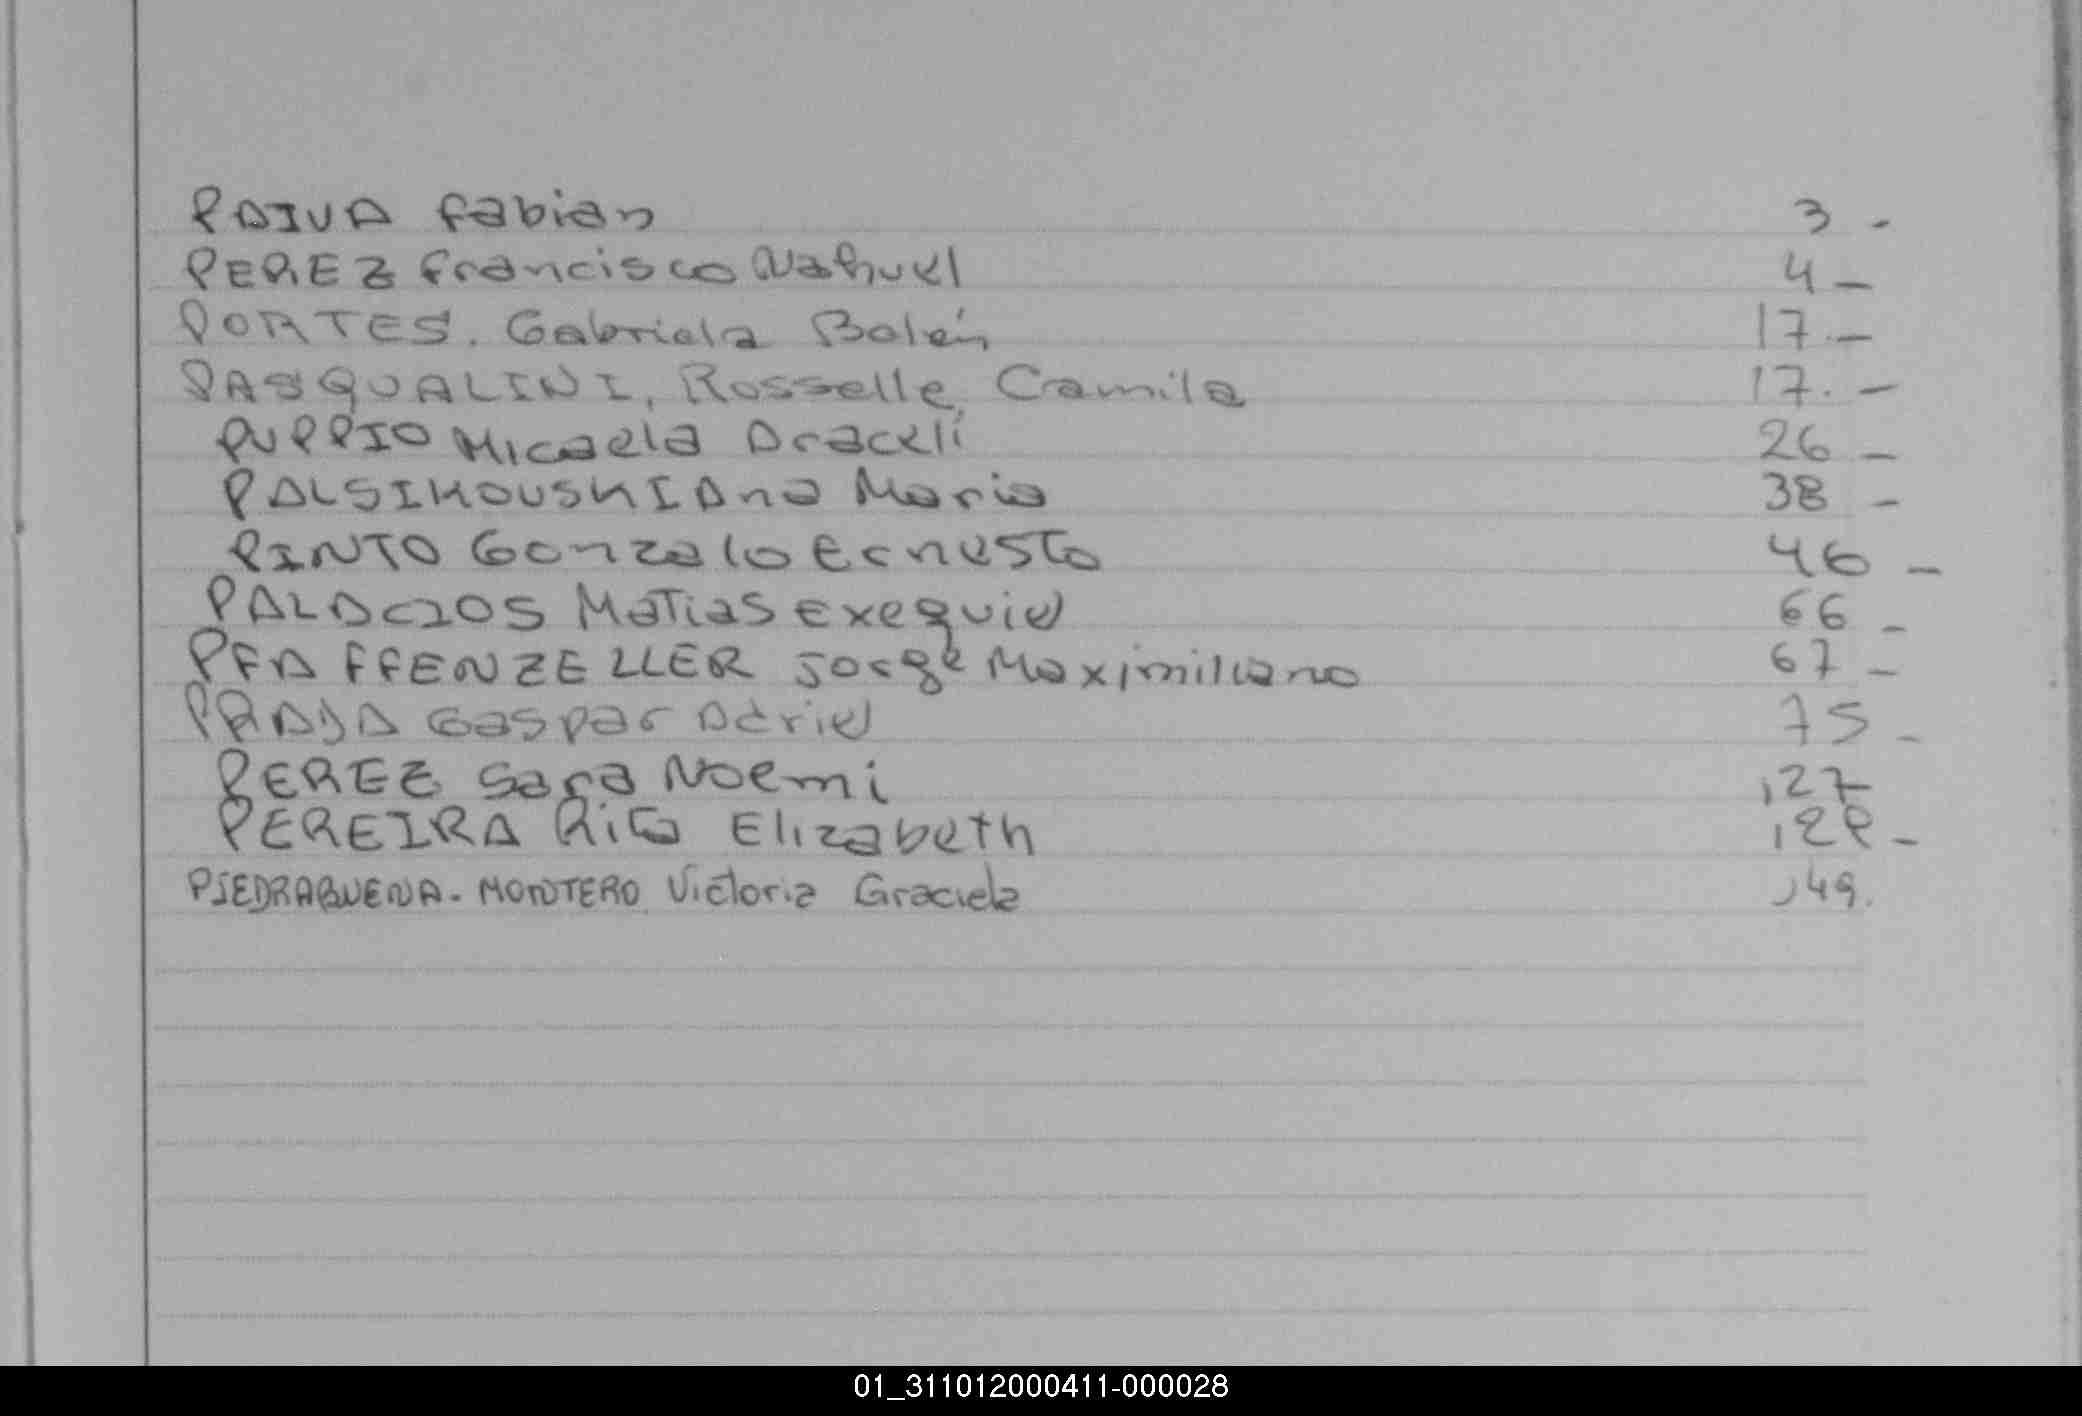 PAIVA Fabian 3 -
PEREZ Francisco Nahuel 4 -
PORTES. Gabriela Belén 17. -
PASQUALINI, Rosselle, Camila 17. -
PUPPIO Micaela Araceli 26 -
PALSIKOUSKI Ana Maria 38 -
PINTO Gonzalo Ernesto 46 -
PALACIOS Matias Exequiel 66 -
PFAFFENZELLER Jorge Maximiliano 67 -
Gaspar Adriel 75 -
PEREZ Sara Noemi 127
PEREIRA Rita Elizabeth 128 -
PIEDRABUENA - MONTERO Victoria Graciela 149.
01_311012000411-000028